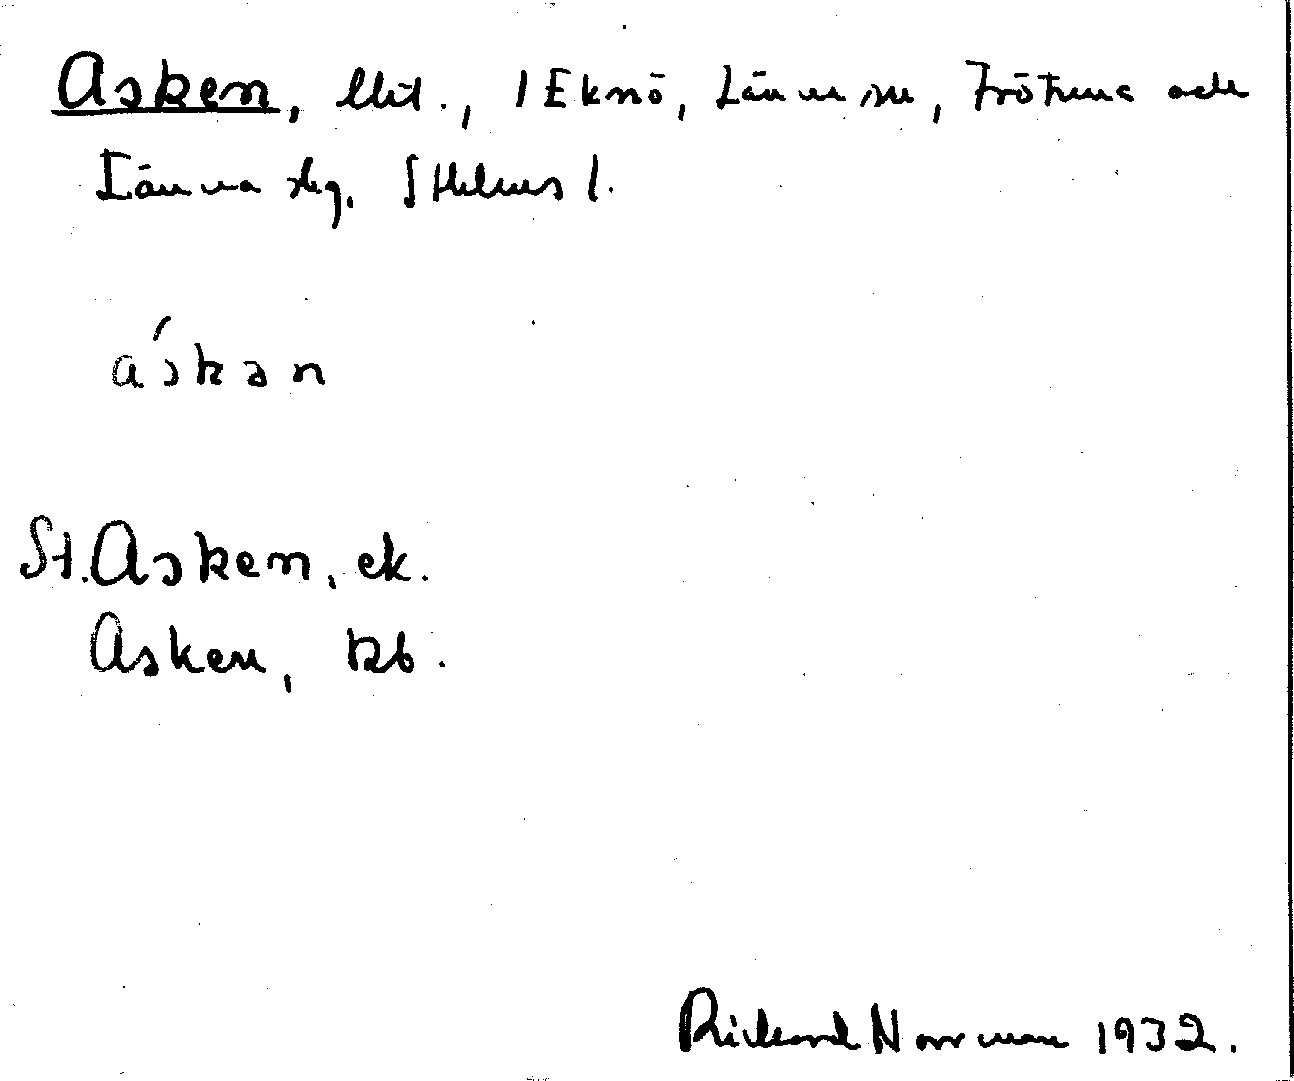 Asken, Utö., 1 Eknö, Länna sn, Frötuna och
Länna skg, Sthlms l.
áskan
St. Asken, ek.
Asken, kb.
Rickard Norrman 1932.